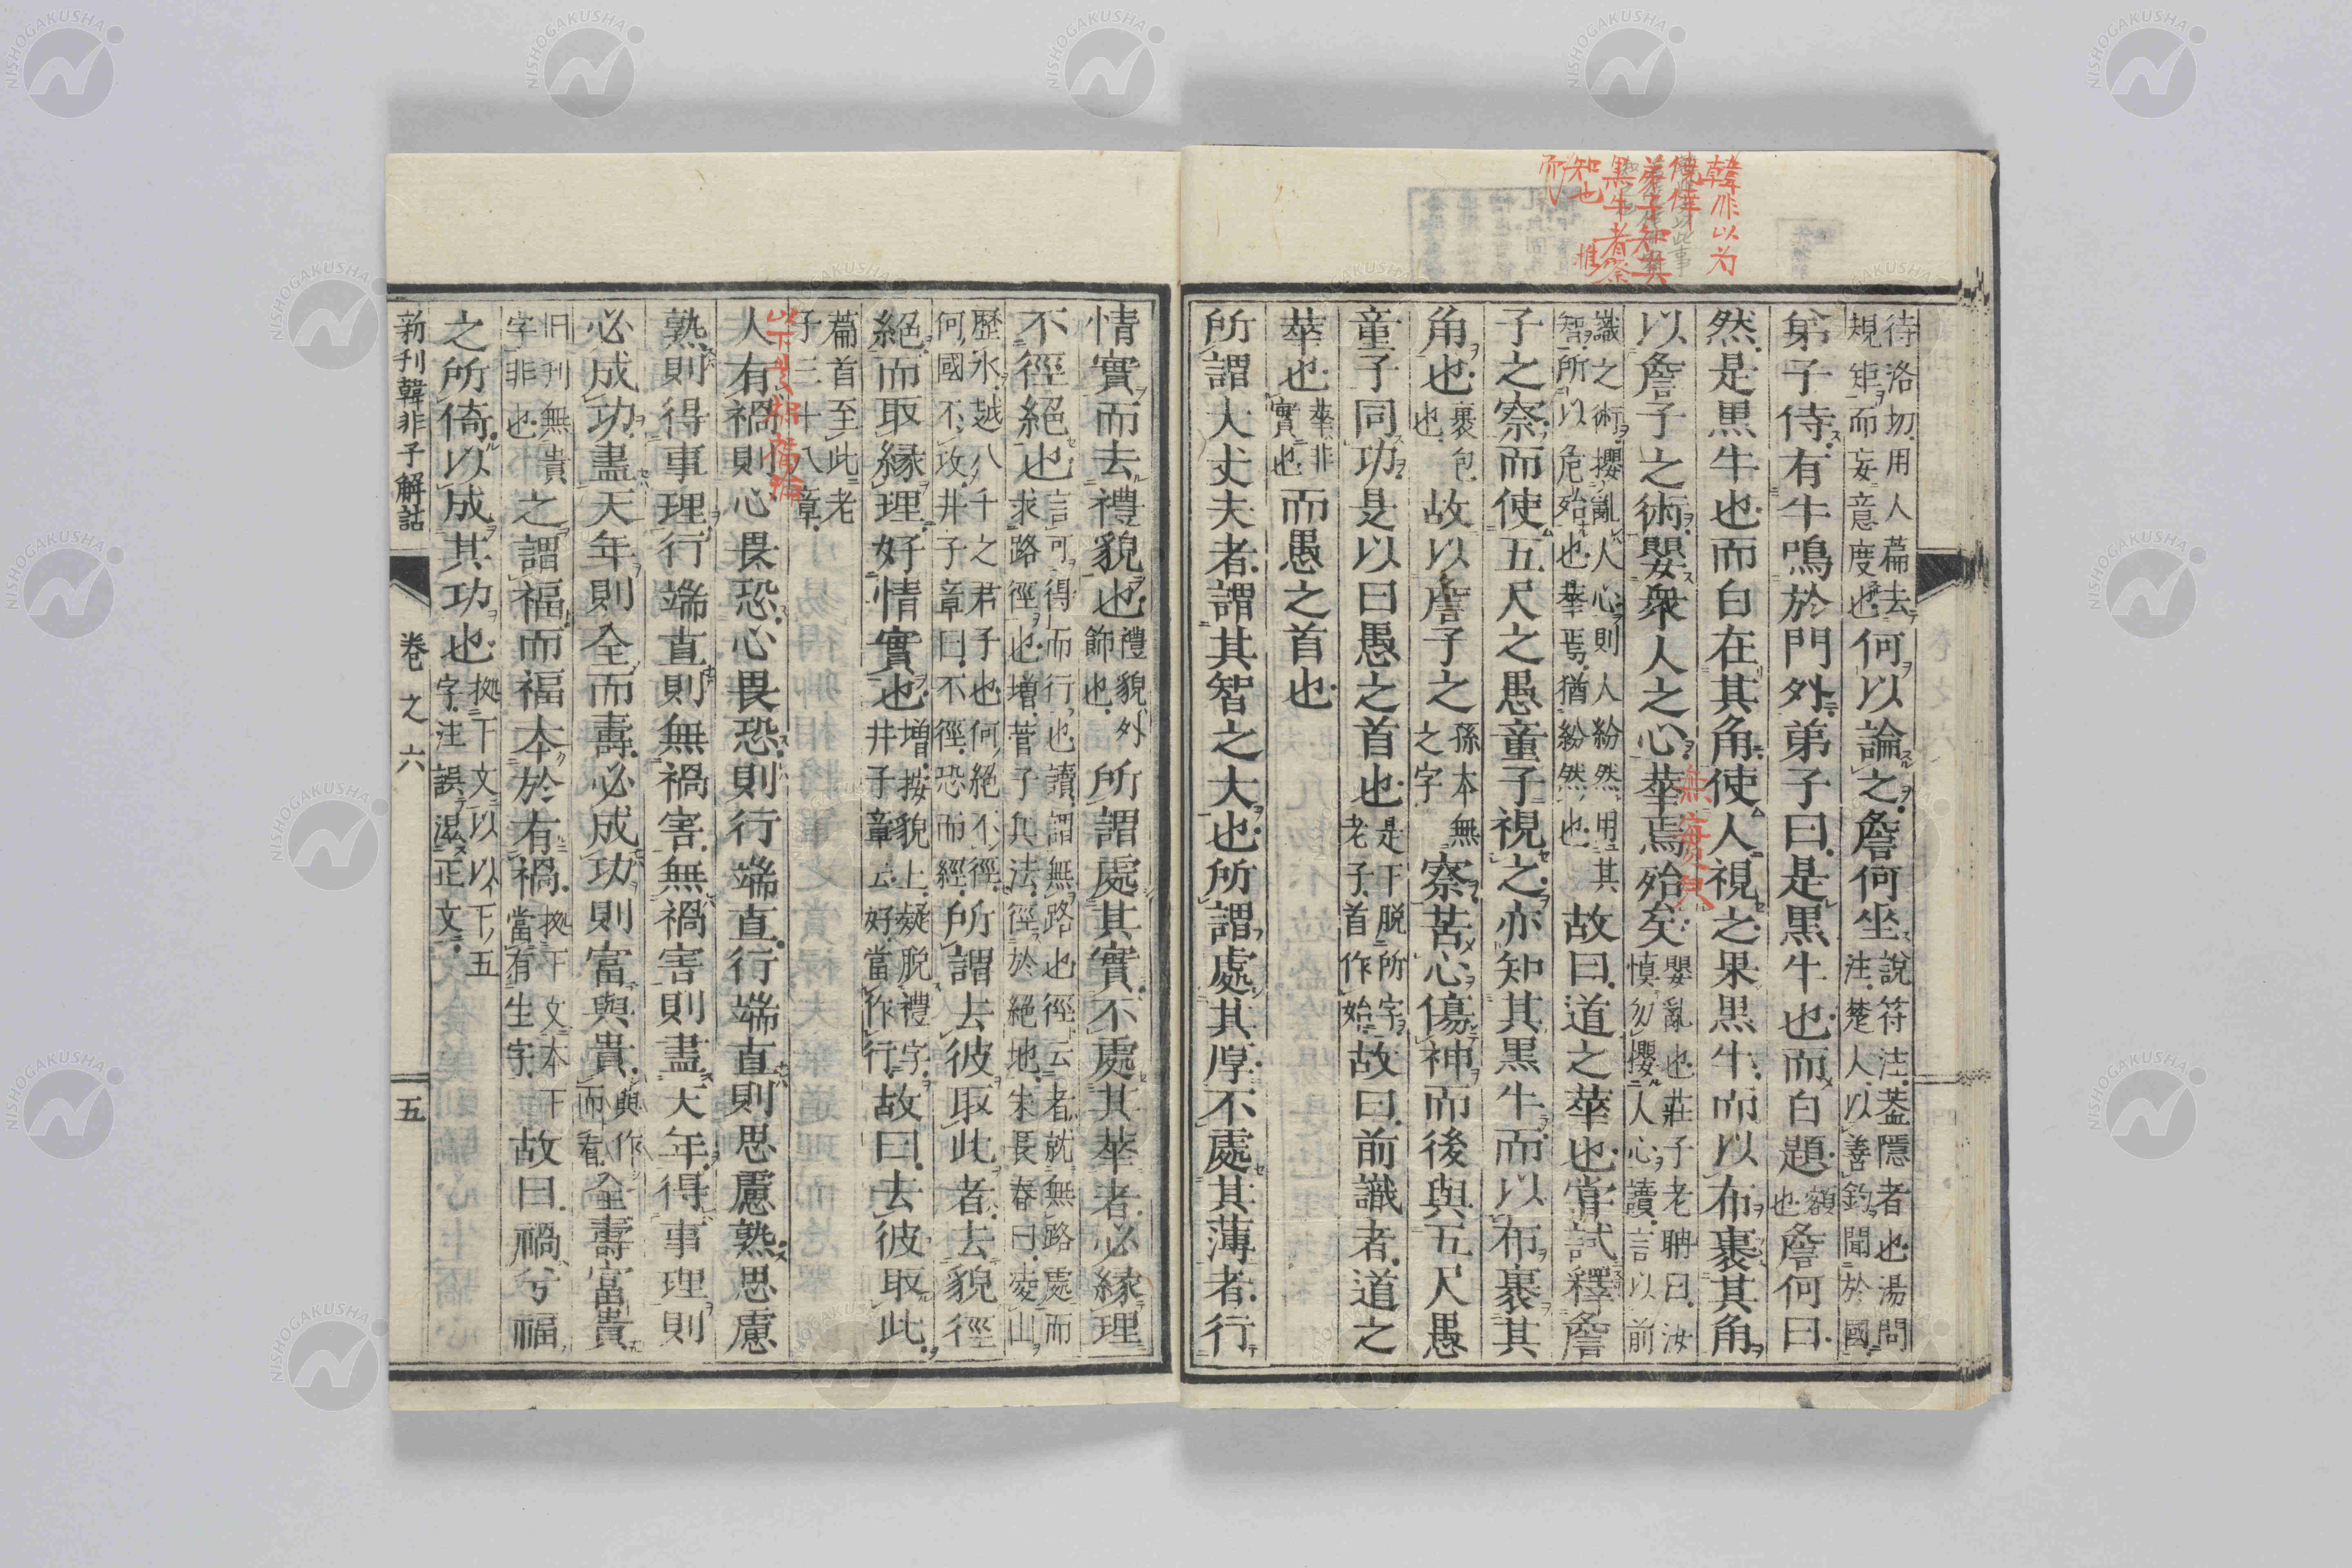 韓非以為
僥倖
弟子知其
黒牛者察
知也
待洛切用人
規矩而妄意度也
何以論之詹何坐
說符注葢隱者也湯問
注楚人以善釣聞於國
弟子侍有牛鳴於門外弟子曰是黒牛也而白題
額也
詹何曰
然是黒牛也而白在其角使人視之果黒牛而以布裹其角
以詹子之術嬰衆人之心華焉殆矣
嬰亂也莊子老聃曰汝
慎勿攖人心讀言以前
識之術攖亂人心則人紛然用其
智所以危殆也華焉猶紛然也
故曰道之華也嘗試釋詹
子之察而使五尺之愚童子視之亦知其黒牛而以布裹其
角也
裹包也
故以詹子之
孫本無
之字
察苦心傷神而後與五尺愚
童子同功是以曰愚之首也
是下脱所字
老子首作始
故曰前識者道之
華也
華非
實也
而愚之首也
所謂大丈夫者謂其智之大也所謂處其厚不處其薄者行
情實而去禮貌也
禮貌外
飾也
所謂處其實不處其華者必緣理
不徑絕也
言可得而行也讀謂無路也徑云者就無路處而
求路徑也増菅子兵法徑於絕地朱長春曰凌山
歷水越八千之君子也何絕不徑
何國不攻井子章曰不徑恐而經
所謂去彼取此者去貌徑
絕而取緣理好情實也
増按貌上疑脱禮字
井子章云好當作行
故曰去彼取此
篇首至此老
子三十八章
以下
人有禍則心畏恐心畏恐則行端直行端直則思慮熟思慮
熟則得事理行端直則無禍害無禍害則盡天年得事理則
必成功盡天年則全而壽必成功則富與貴
與作
而看
全壽富貴
旧刊無貴
字非也
之謂福而福本於有禍
拠下文本下
當有生字
故曰禍兮福
之所倚以成其功也
拠下文以以下五
字注誤混正文
新刊韓非子解詁
卷之六
五